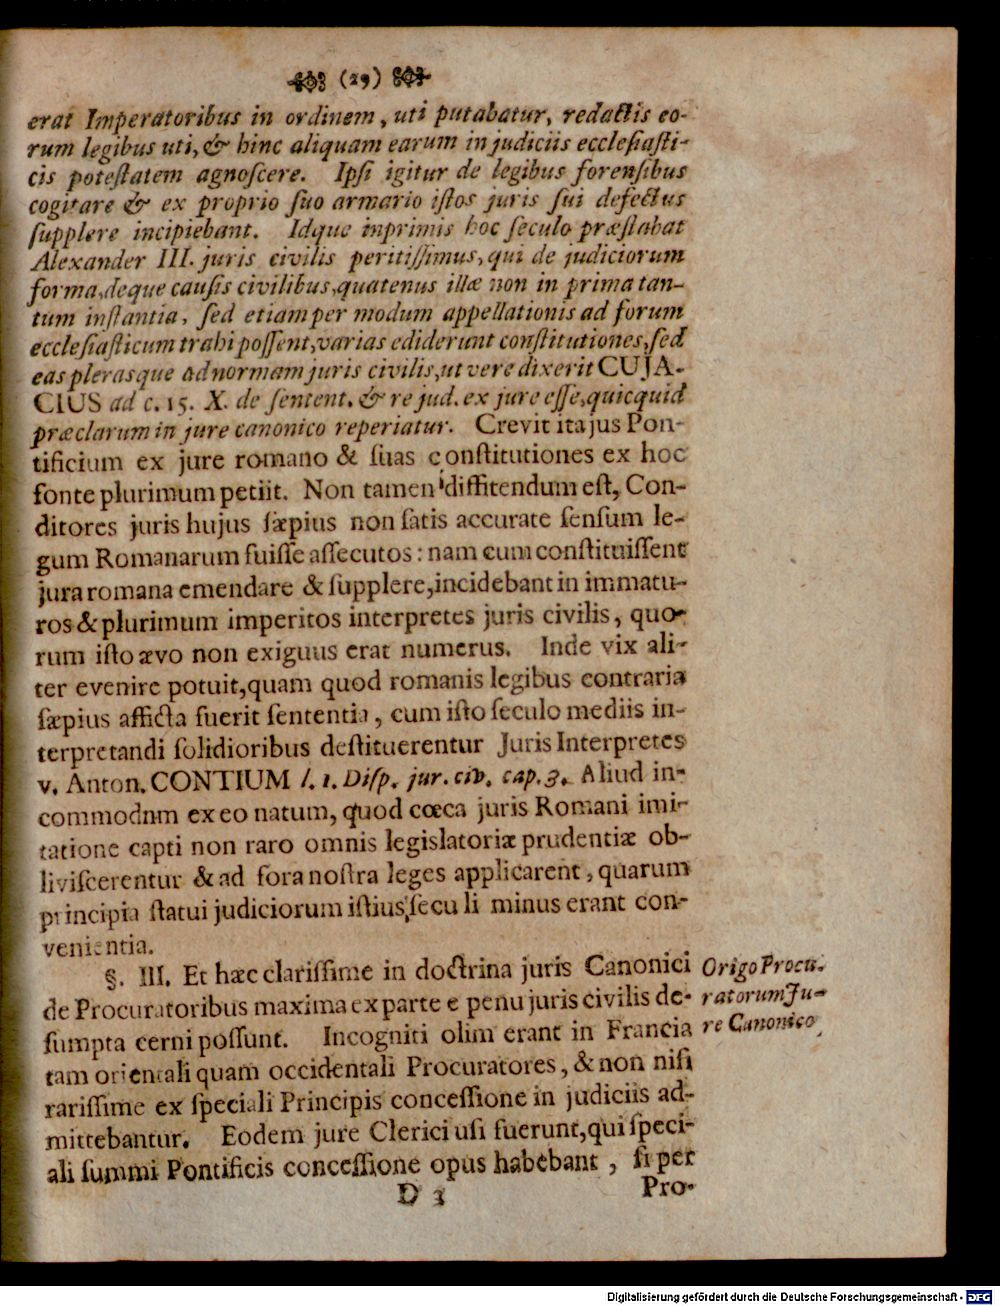 (29)
erat Imperatoribus in ordinem, uti putabatur, redactis eo-
rum legibus uti, & hinc aliquam earum in judiciis ecclesiasti-
cis potestatem agnoscere. Ipsi igitur de legibus forensibus
cogitare & ex proprio suo armario istos juris sui defectus
supplere incipiebant. Idque inprimis hoc seculo præstabat
Alexander III. juris civilis peritissimus, qui de judiciorum
forma, deque causis civilibus, quatenus illæ non in prima tan-
tum instantia, sed etiam per modum appellationis ad forum
ecclesiasticum trahi possent, varias ediderunt constitutiones, sed
eas plerasque ad normam juris civilis, ut vere dixerit CUJA-
CIUS ad c. 15. X. de sentent. & re jud. ex jure esse, quicquid
præclarum in jure canonico reperiatur. Crevit ita jus Pon-
tificium ex jure romano & suas constitutiones ex hoc
fonte plurimum petiit. Non tamen diffitendum est, Con-
ditores juris hujus sæpius non satis accurate sensum le-
gum Romanarum fuisse assecutos : nam cum constituissent
jura romana emendare & supplere, incidebant in immatu-
ros & plurimum imperitos interpretes juris civilis, quo-
rum isto ævo non exiguus erat numerus. Inde vix ali-
ter evenire potuit, quam quod romanis legibus contraria
sæpius afficta fuerit sententia, cum isto seculo mediis in-
terpretandi solidioribus destituerentur Juris Interpretes
v. Anton. CONTIUM l. 1. Disp. jur. civ. cap. 3. Aliud in-
commodnm ex eo natum, quod cœca juris Romani imi-
tatione capti non raro omnis legislatoriæ prudentiæ ob-
liviscerentur & ad fora nostra leges applicarent, quarum
principia statui judiciorum istius seculi minus erant con-
venientia.
§. III. Et hæc clarissime in doctrina juris Canonici
de Procuratoribus maxima ex parte e penu juris civilis de-
sumpta cerni possunt. Incogniti olim erant in Francia
tam orientali quam occidentali Procuratores, & non nisi
rarissime ex speciali Principis concessione in judiciis ad-
mittebantur. Eodem jure Clerici usi fuerunt, qui speci-
ali summi Pontificis concessione opus habebant, si per
D 3
Pro-
Origo Procu-
ratorum Ju-
re Canonico
Digitalisierung gefördert durch die Deutsche Forschungsgemeinschaft - DFG